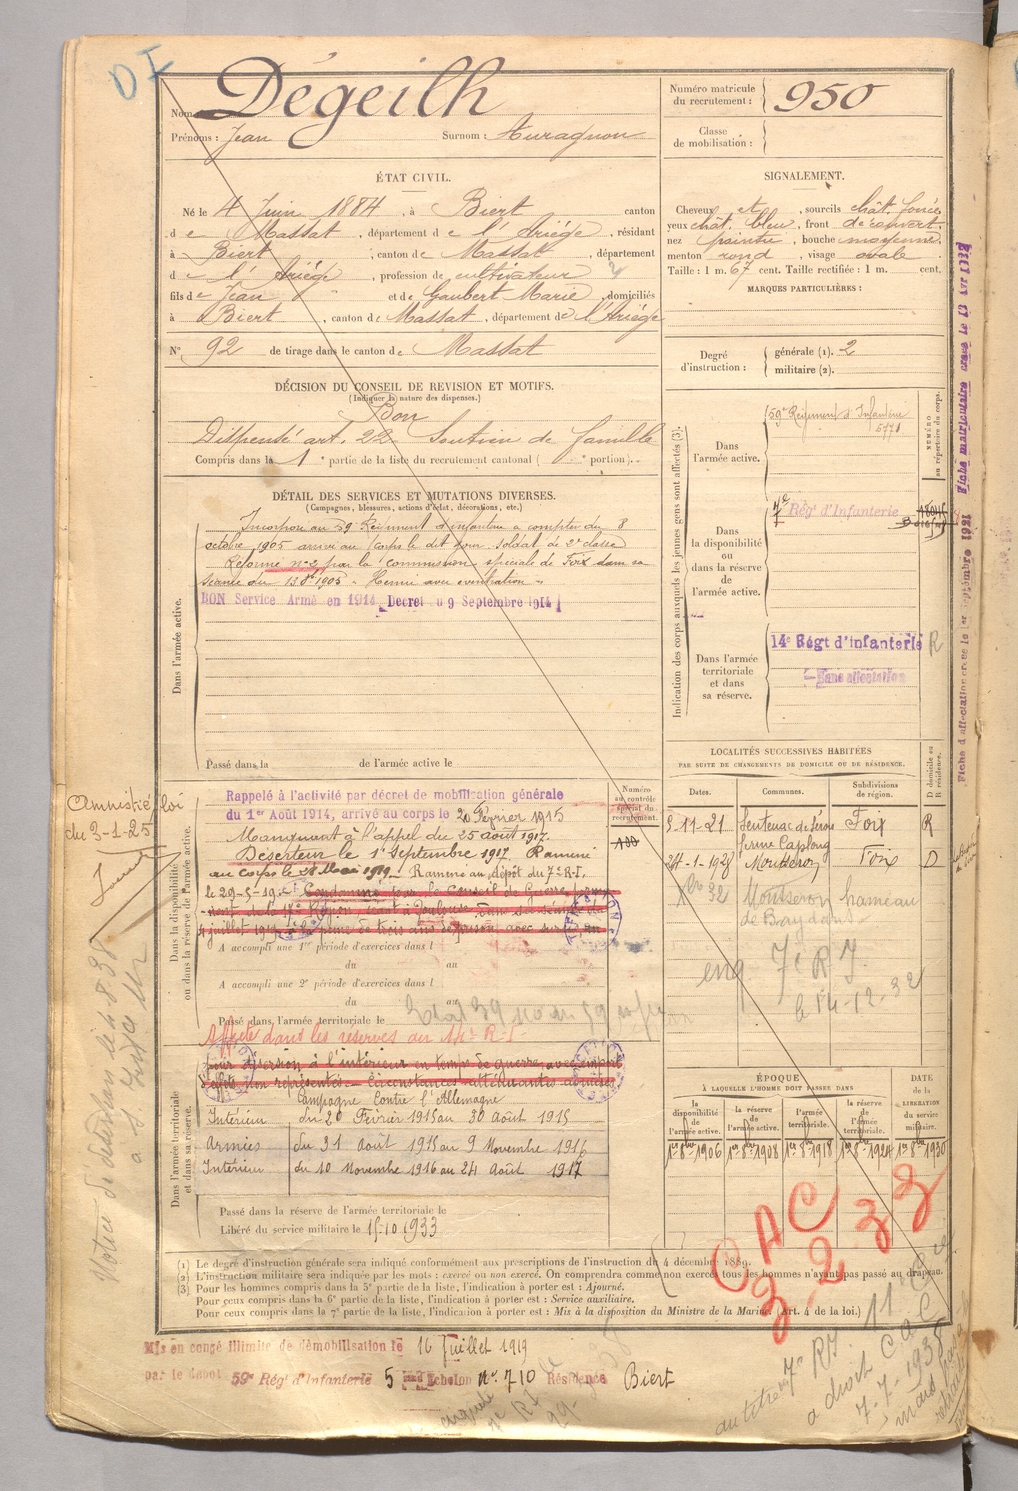 OF
Nom Dégeilh
Prénoms : Jean Surnom : Auragnon
ÉTAT CIVIL.
Né le 4 Juin 1884, à Biert canton
de Massat, département de l'Ariège, résidant
à Biert, canton de Massat, département
de l'Ariège, profession de cultivateur
fils de Jean et de Gaubert Marie, domiciliés
à Biert, canton de Massat, département de l'Ariège
N° 92 de tirage dans le canton de Massat
DÉCISION DU CONSEIL DE REVISION ET MOTIFS.
(Indiquer la nature des dispenses.)
Bon
Dispensé art. 22 Soutien de famille
Compris dans la 1e partie de la liste du recrutement cantonal ( e portion).
DÉTAIL DES SERVICES ET MUTATIONS DIVERSES.
(Campagnes, blessures, actions d'éclat, décorations, etc.)
Dans l'armée active.
Incorporé au 59e Régiment d'infanterie à compter du 8
octobre 1905 arrivé au corps le dit jour. Soldat de 2e classe
Réformé n° 2 par la commission spéciale de Foix dans sa
séance du 13 8bre 1905 « Hernie avec éventration »
BON Service Armé en 1914 Decret du 9 Septembre 1914
Passé dans la de l'armée active le
Numéro matricule du recrutement : 950
Classe de mobilisation :
SIGNALEMENT.
Cheveux et, sourcils chât. foncé
yeux chât. bleu, front découvert,
nez pointu, bouche moyenne,
menton rond, visage ovale
Taille : 1 m. 67 cent. Taille rectifiée : 1 m. cent.
MARQUES PARTICULIÈRES :
Degré d'instruction : générale (1). 2
militaire (2).
Indication des corps auxquels les jeunes gens sont affectés (3).
NUMÉRO au répertoire du corps.
Dans l'armée active.
59e Régiment d'Infanterie
5771
Dans la disponibilité ou dans la réserve de l'armée active.
7e Régt d'Infanterie
Dans l'armée territoriale et dans sa réserve.
14e Régt d'infanterie R
Sans affectation
Fiche d'affectation créée le 1er septembre 1921 Fiche matriculaire créée le 13 Avr 1932
LOCALITÉS SUCCESSIVES HABITÉES
PAR SUITE DE CHANGEMENTS DE DOMICILE OU DE RÉSIDENCE.
D domicile ou R résidence.
Dates. Communes. Subdivisions de région.
5-11-21 Sentenac de Sérou Foix R
24-1-1928 Montseron Foix D
32 Montseron hameau
7e R I
le 14-12-32
Amnistié loi
du 3-1-25
Dans la disponibilité ou dans la réserve de l'armée active.
Numéro au contrôle spécial du recrutement.
Rappelé à l'activité par décret de mobilisation générale
du 1er Août 1914, arrivé au corps le 20 Février 1915
Manquant à l'appel du 25 août 1917.
Déserteur le 1er Septembre 1917 Ramené
au corps le 28 Mai 1919. Ramené au dépôt du 7e R.I.
le 29-5-19 Condamné par le Conseil de Guerre perma-
nent de la 17e Région, séant à Toulouse, dans sa séance du
4 juillet 1919 à la peine de trois ans de prison avec sursis,
A accompli une 1re période d'exercices dans l
du au
A accompli une 2e période d'exercices dans l
du au
Passé dans l'armée territoriale le
Affecté dans les réserves au 14e R.I
Dans l'armée territoriale et dans sa réserve.
pour désertion à l'intérieur en temps de guerre, avec emport
d'effets non représentés. Circonstances atténuantes admises
Campagne Contre l'Allemagne
Intérieur du 20 Février 1915 au 30 Août 1915
Armées du 31 Août 1915 au 9 Novembre 1916
Intérieur du 10 Novembre 1916 au 24 Août 1917
Passé dans la réserve de l'armée territoriale le
Libéré du service militaire le 15-10-1933
ÉPOQUE
À LAQUELLE L'HOMME DOIT PASSER DANS
DATE de la LIBÉRATION du service militaire.
la disponibilité de l'armée active. la réserve de l'armée active. l'armée territoriale. la réserve de l'armée territoriale.
1er 8bre 1906 1er 8bre 1908 1er 8bre 1918 1er 8bre 1924 1er 8bre 1930
(1) Le degré d'instruction générale sera indiqué conformément aux prescriptions de l'instruction du 4 décembre 1889.
(2) L'instruction militaire sera indiquée par les mots : exercé ou non exercé. On comprendra comme non exercés tous les hommes n'ayant pas passé au drapeau.
(3) Pour les hommes compris dans la 5e partie de la liste, l'indication à porter est : Ajourné.
Pour ceux compris dans la 6e partie de la liste, l'indication à porter est : Service auxiliaire.
Pour ceux compris dans la 7e partie de la liste, l'indication à porter est : Mis à la disposition du Ministre de la Marine. (Art. 4 de la loi.)
Mis en congé illimité de démobilisation le 16 Juillet 1919
par le dépôt 59e Rég' d'Infanterie 5 Echelon n° 710 Résidence Biert
au titre 7e RI
a droit C a C
7-7-1938